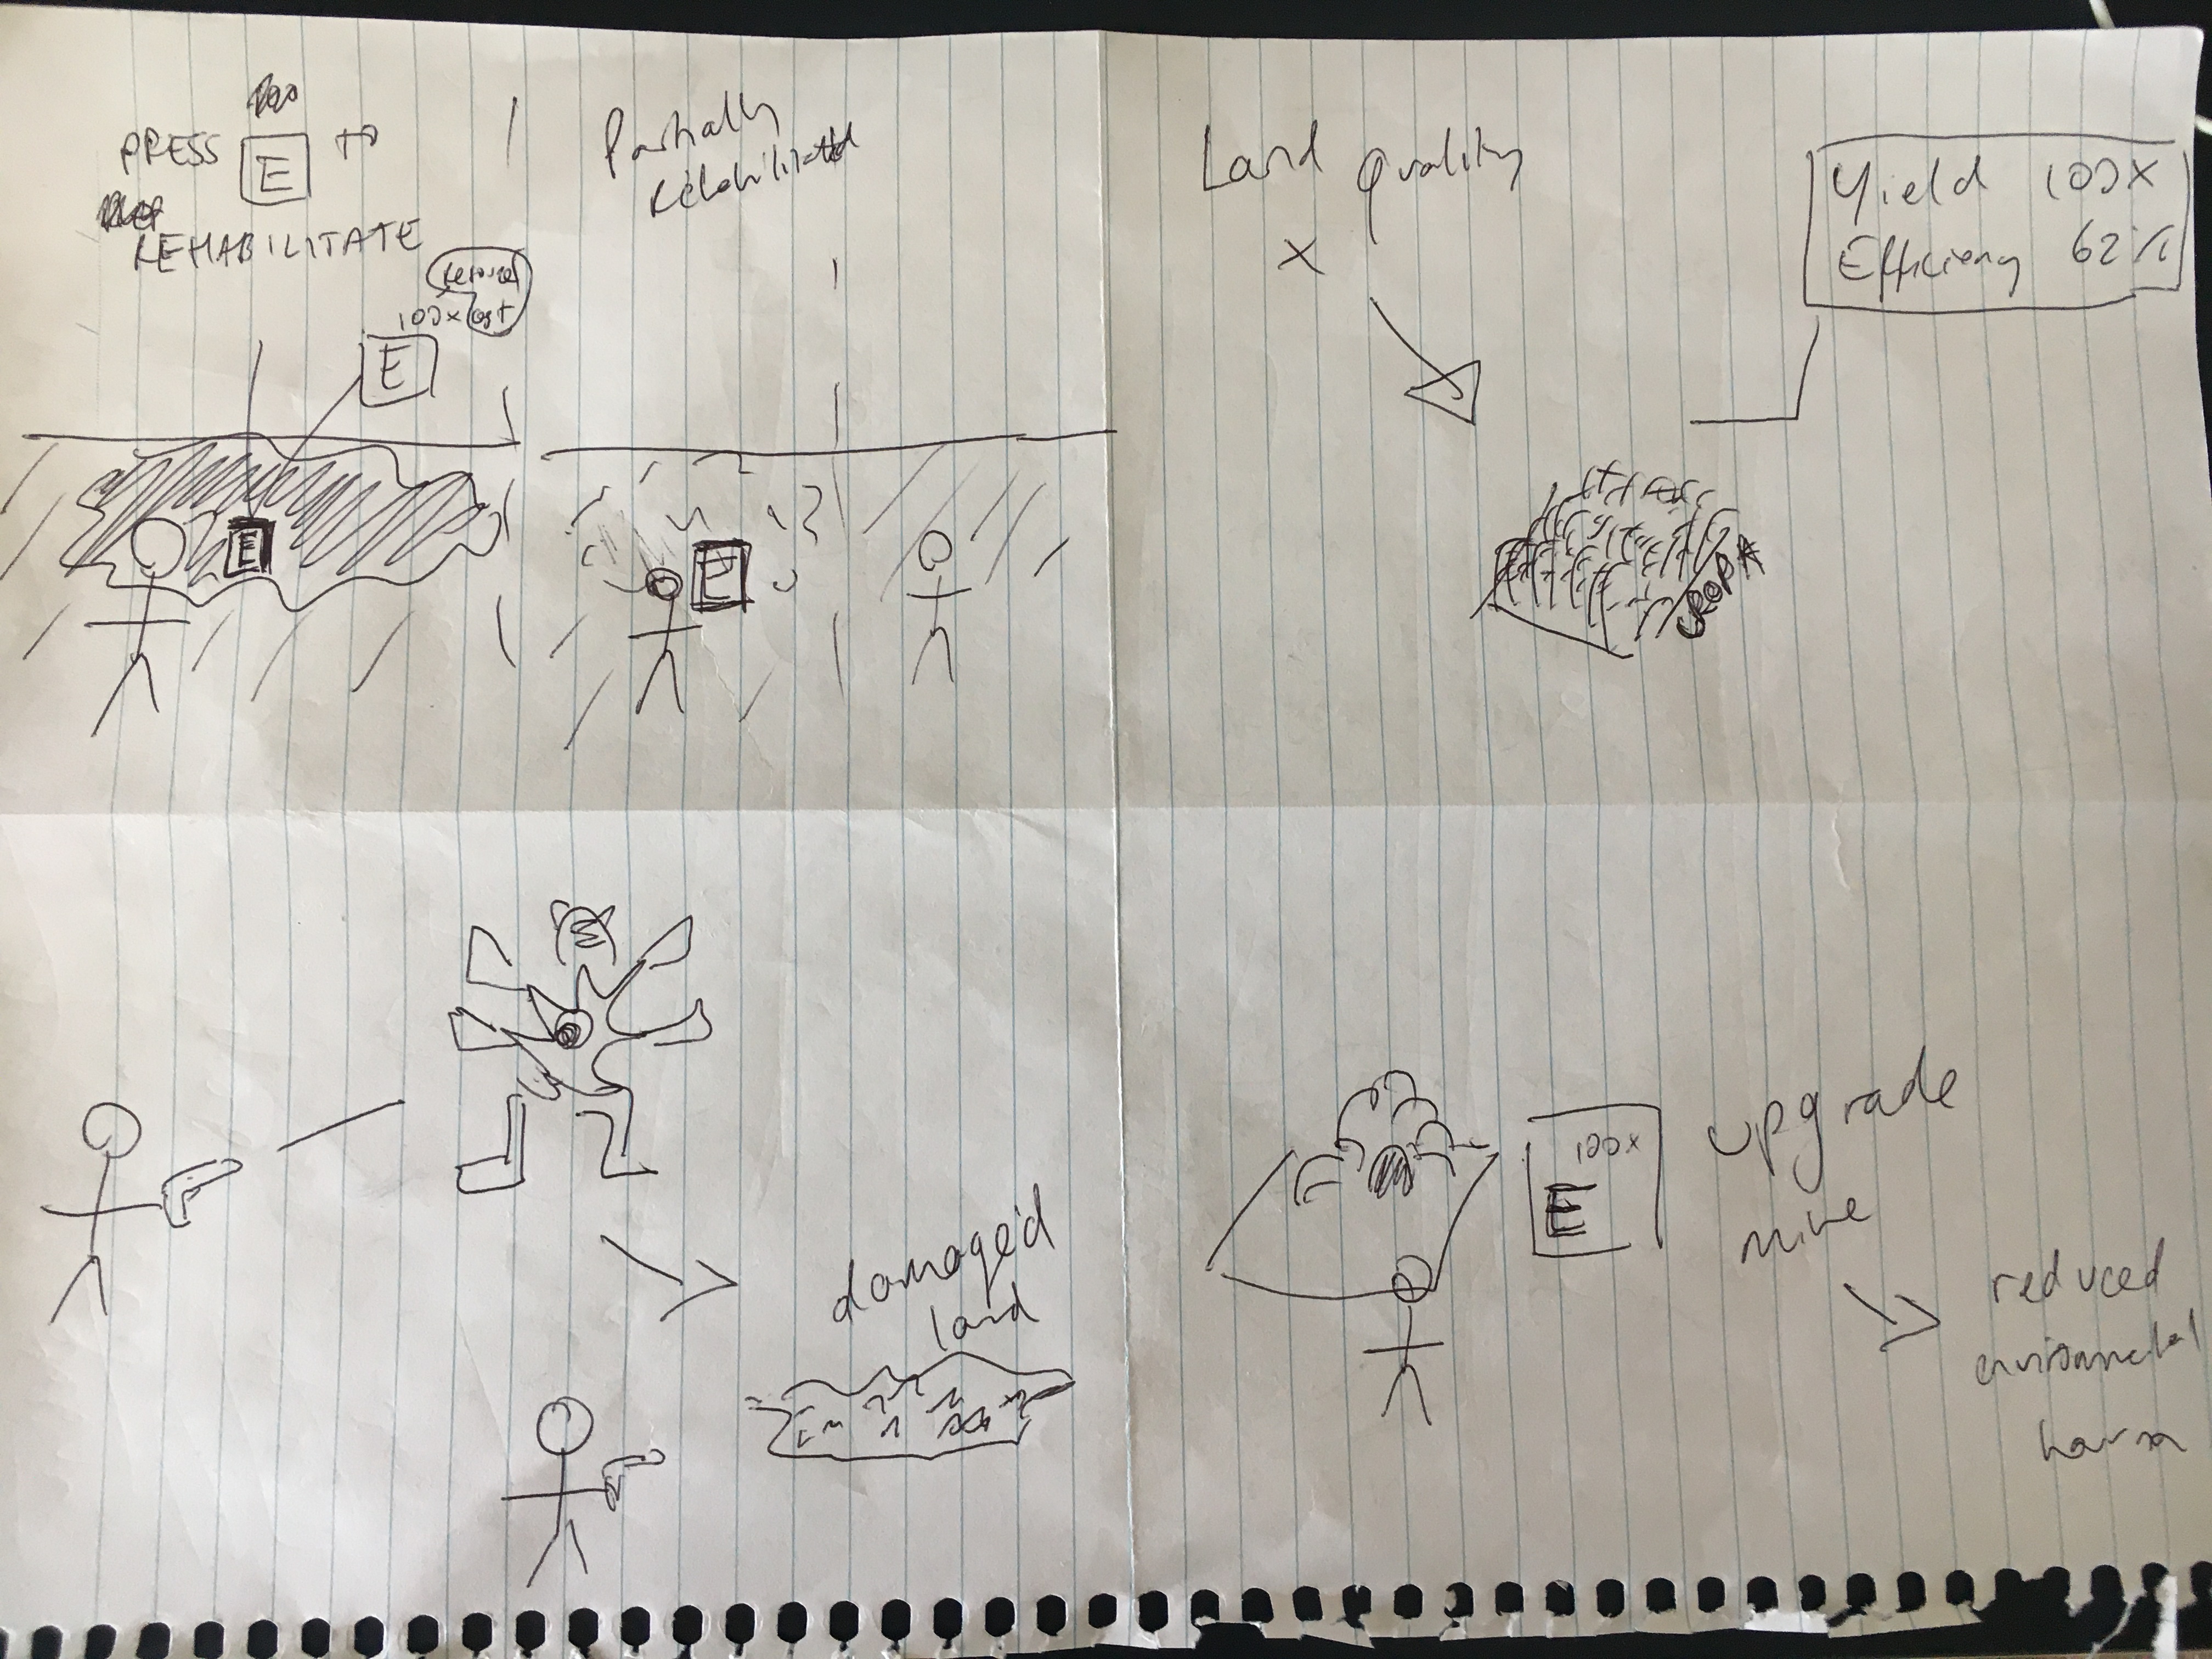 PRESS E TO
REHABILITATE
resource
100x cost
E
E
Partially
rehabilitated
E
Land quality
X
Yield 100x
Efficiency 62%
CROP A
damaged
land
100x
E
upgrade
mine
reduced
environmental
harm